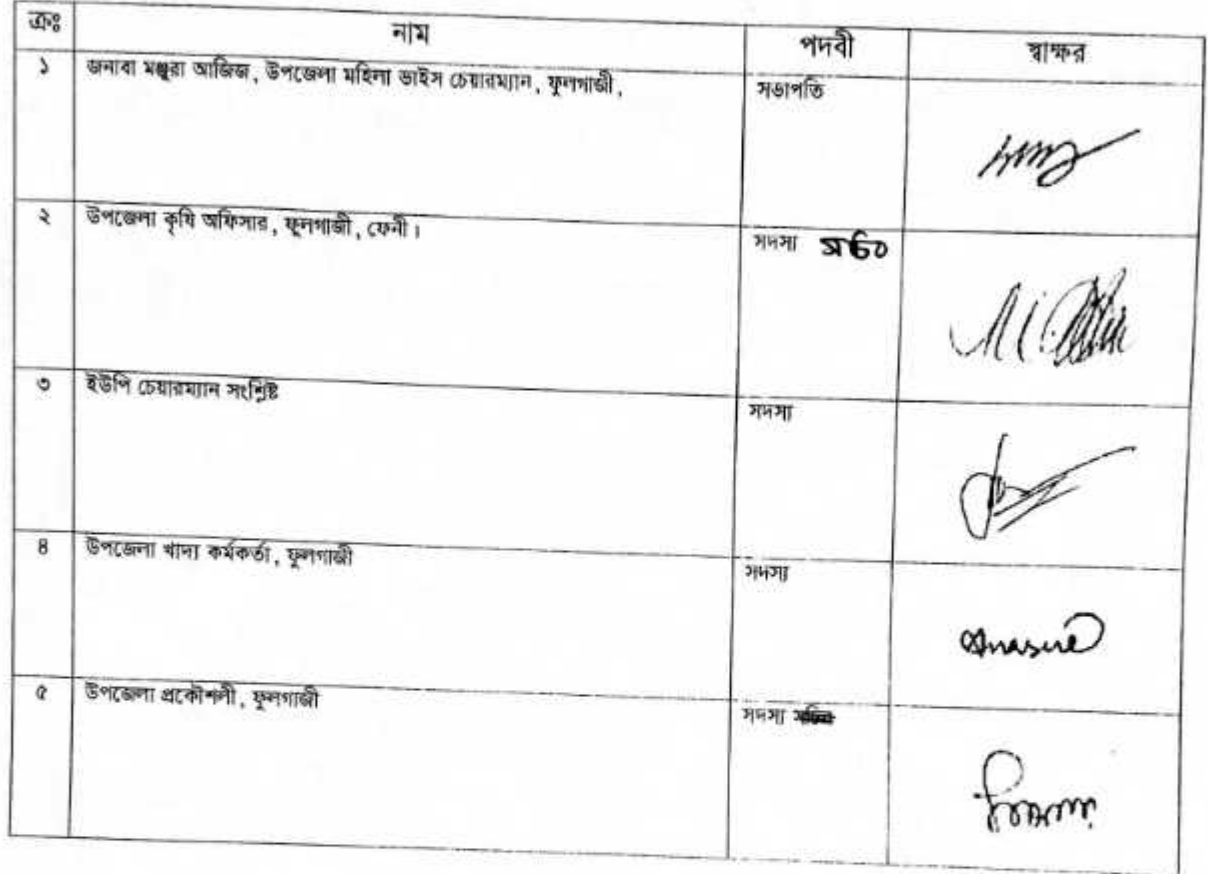 ক্রঃ নাম পদবী স্বাক্ষর
১ জনাবা মঞ্জুরা আজিজ, উপজেলা মহিলা ভাইস চেয়ারম্যান, ফুলগাজী, সভাপতি
২ উপজেলা কৃষি অফিসার, ফুলগাজী, ফেনী। সদস্য সচিব
৩ ইউপি চেয়ারম্যান সংশ্লিষ্ট সদস্য
৪ উপজেলা খাদ্য কর্মকর্তা, ফুলগাজী সদস্য
৫ উপজেলা প্রকৌশলী, ফুলগাজী সদস্য সচিব